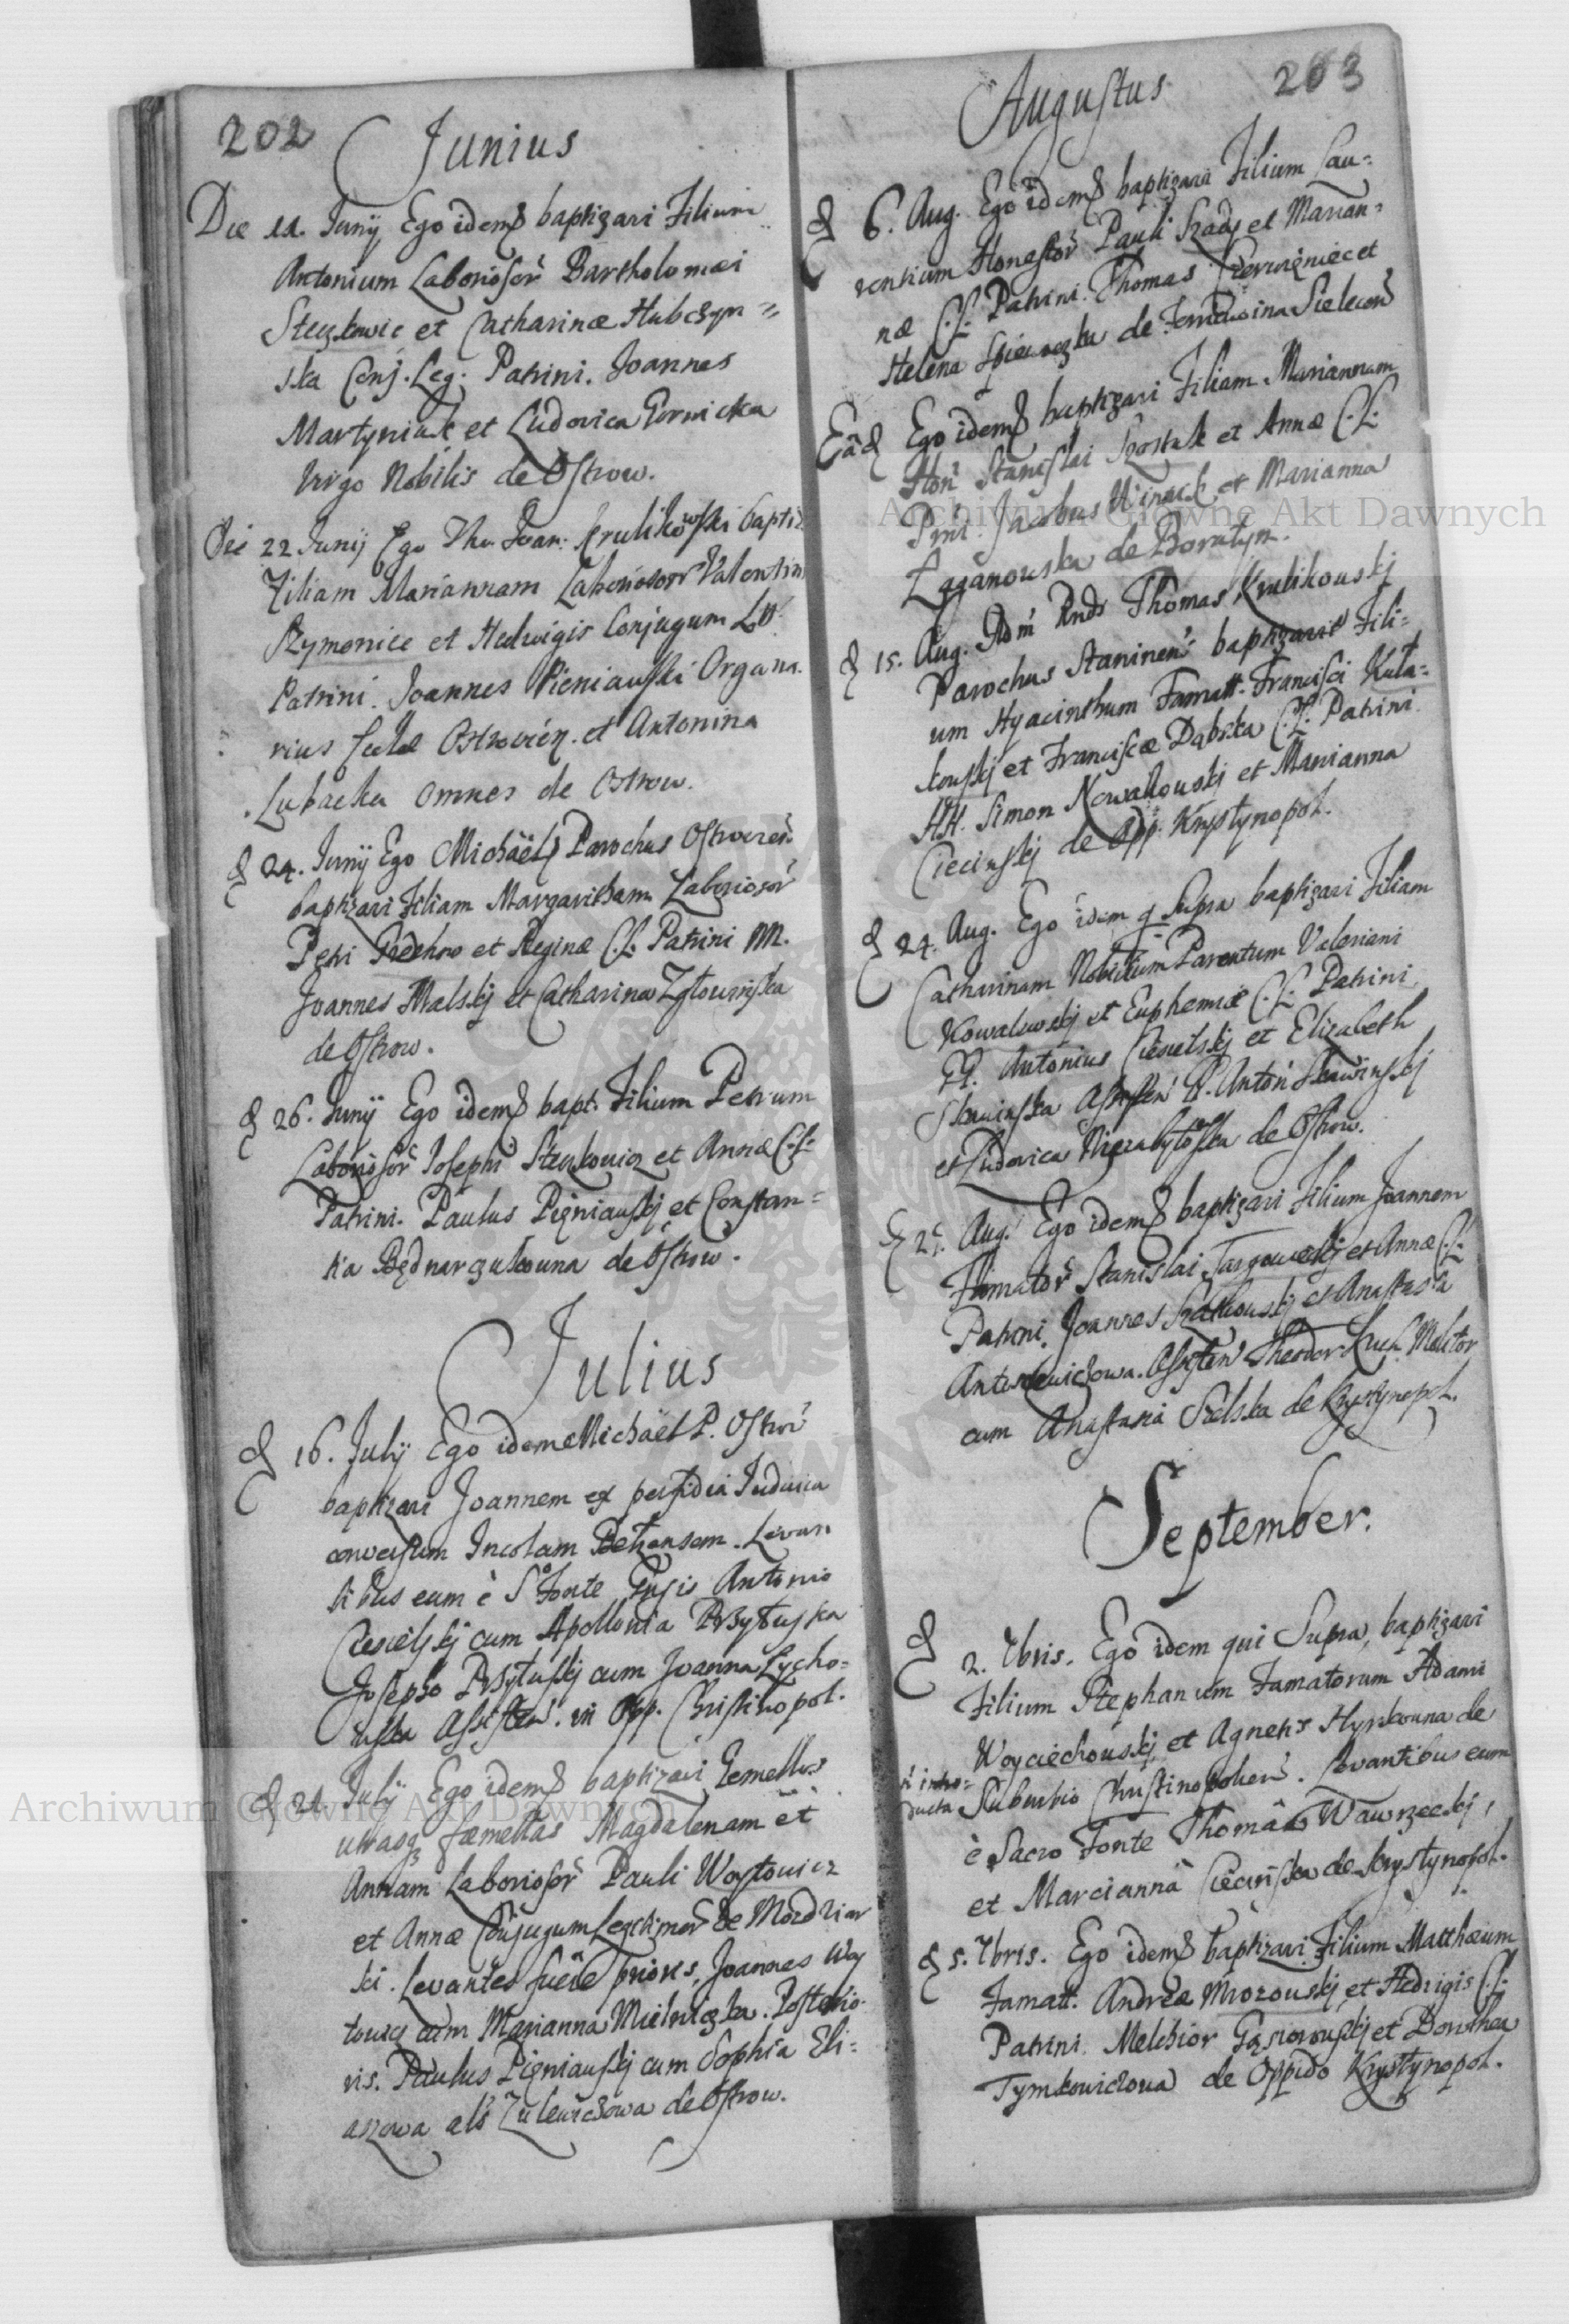 202
Junius
Die 11. Junÿ Ego idem baptizavi Filium
Antonium Laboriosor̃ Bartholomæi
et Catharinæ Hubczyn=
ska Conj. Leg: Patrini. Joannes
Martyniuk et Ludovica Gornicka
Virgo Nobilis de Ostrow.
Die 22 Junij Ego Tho. Joan: Krulikowski baptiz
Filiam Mariannam Laboriosor Valentini
Szymonice et Hedwigis Conjugum LL.
Patrini. Joannes Pieniauski Organa.
rius Ostrovien. et Antonina
Lubacka omnes de Ostrow.
d 24. Junÿ Ego Michaël Parochus Ostrovien̄.
baptizavi Filiam Margaritham Laboriosor̃
Petri et Reginæ C.L. Patrini M.
Joannes Malskj et Catharina
de Ostrow.
d 26. Junÿ Ego idem bapt. Filium Petrum
Laboriosor̃ Josephi et Annæ C.L.
Patrini. Paulus Pięniauskj et Constan=
tia Będnarczukowna de Ostrow.
Julius
d 16. Julÿ Ego idem Michaël P. Ostrov̄
baptizavi Joannem ex perfidia Judaica
conversum Incolam Bełzensem. Levan
tibus eum è S. Fonte Antonio
Ciesielskj cum Apollonia Przyłuska
Josepho Przyłuskj cum Joanna Lycho=
Assisten̄. in Opp. Christinopol.
d 21. Julÿ Ego idem baptizavi Gemellas
utrasq3 fæmellas Magdalenam et
Annam Laboriosor̃ Pauli Woytowicz
et Annæ Conjugum Legitimor̃ de
ki. Levantes fuere prioris, Joannes Woy
towicz cum Marianna Mielniczka. Posterio
ris. Paulus Pięniauskj cum Sophia Eli=
aszowa als Zulewiczowa de Ostrow.
203
Augustus
d 6. Aug. Ego idem baptizavi Filium Lau=
rentium Honestor̃ Pauli et Marian=
næ C.L. Patrini. Thomas et
Helena de
Eād Ego idem baptizavi Filiam Mariannam
Hon̄ Stanislai Szostak et Annæ C.L.
Jacobus et Marianna
de Boratyn.
d 15. Aug. Adm̄ Rnds Thomas Krulikouskj
Parochus Staninen̄ baptizavit Fili=
um Hyacinthum Famatt. Francisci Kuła=
kouskj et Franciscæ Dąbska C.L. Patrini
HH. Simon Nowakouskj et Marianna
Ciecinskj de Opp. Krystynopol.
d 24. Aug. Ego idem q Supra baptizavi Filiam
Catharinam Nobilium Parentum Valeriani
Kowalewskj et Euphemiæ C.L. Patrini
Antonius Ciesielskj et Elizabeth
Skawinska Assisten̄ Anton̄ Skawinskj
et Ludovica de Ostrow.
d 25. Aug. Ego idem baptizavi Filium Joannem
Famator̃ Stanislai Targowskj et Annæ C.L.
Patrini. Joannes et Anastasia
Antoniewiczowa. Assisten̄ Theodor Molitor
cum Anastasia de Krystynopol.
September.
d 2. 7bris. Ego idem qui Supra, baptizavi
Filium Stephanum Famatorum Adami
Woyciechouskj et Agnetis Hyrkowna de
Suburbio Christinopolien̄. Levantibus eum
introducta
è Sacro Fonte Thoma Wawrzeckj,
et Marcianna Ciecinska de Krystynopol.
d 5. 7bris. Ego idem baptizavi Filium Matthæum
Famatt. Andreæ Mrozouskj et Hedvigis C.L.
Patrini. Melchior et Dorothea
Tymkowiczowa de Oppido Krystynopol.
Archiwum Główne Akt Dawnych
Archiwum Główne Akt Dawnych